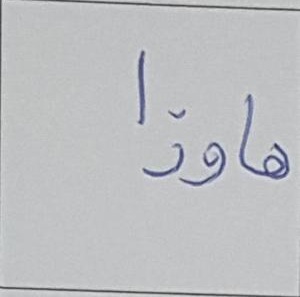 هاوڕا